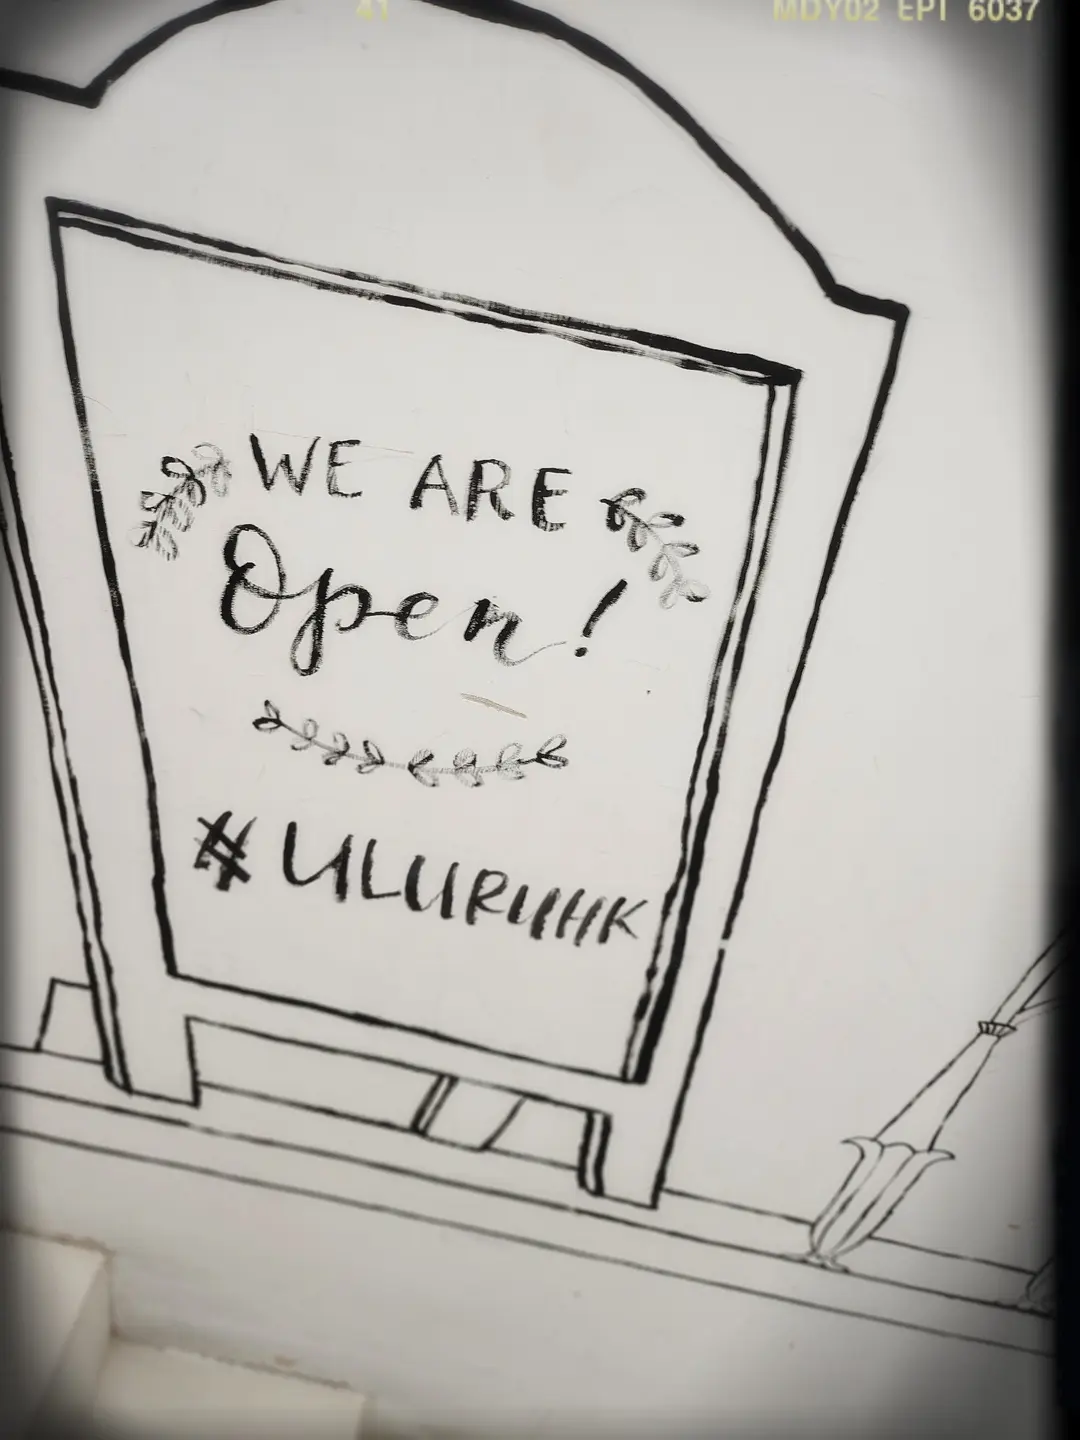 41 MDY02 EPI 6037
WE ARE
Open!
#ULURUHK